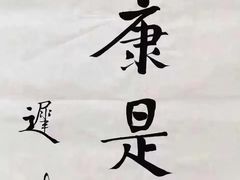 康是
遲